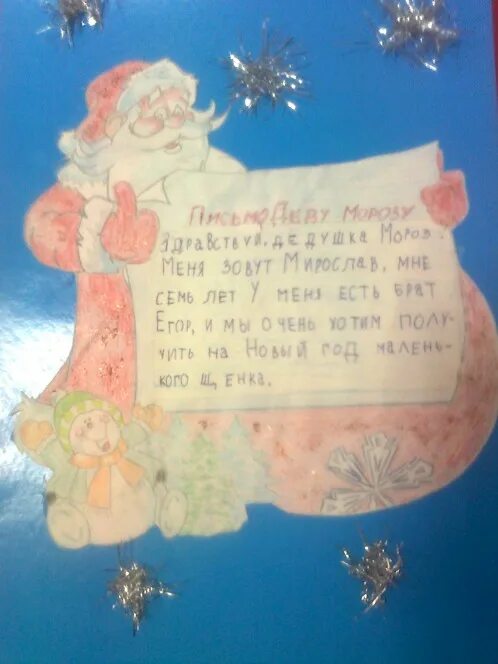 Письмо Деду Морозу
Здравствуй, дедушка Мороз.
Меня зовут Мирослав, мне
семь лет У меня есть брат
Егор, и мы очень хотим полу-
чить на Новый год малень-
кого щенка.